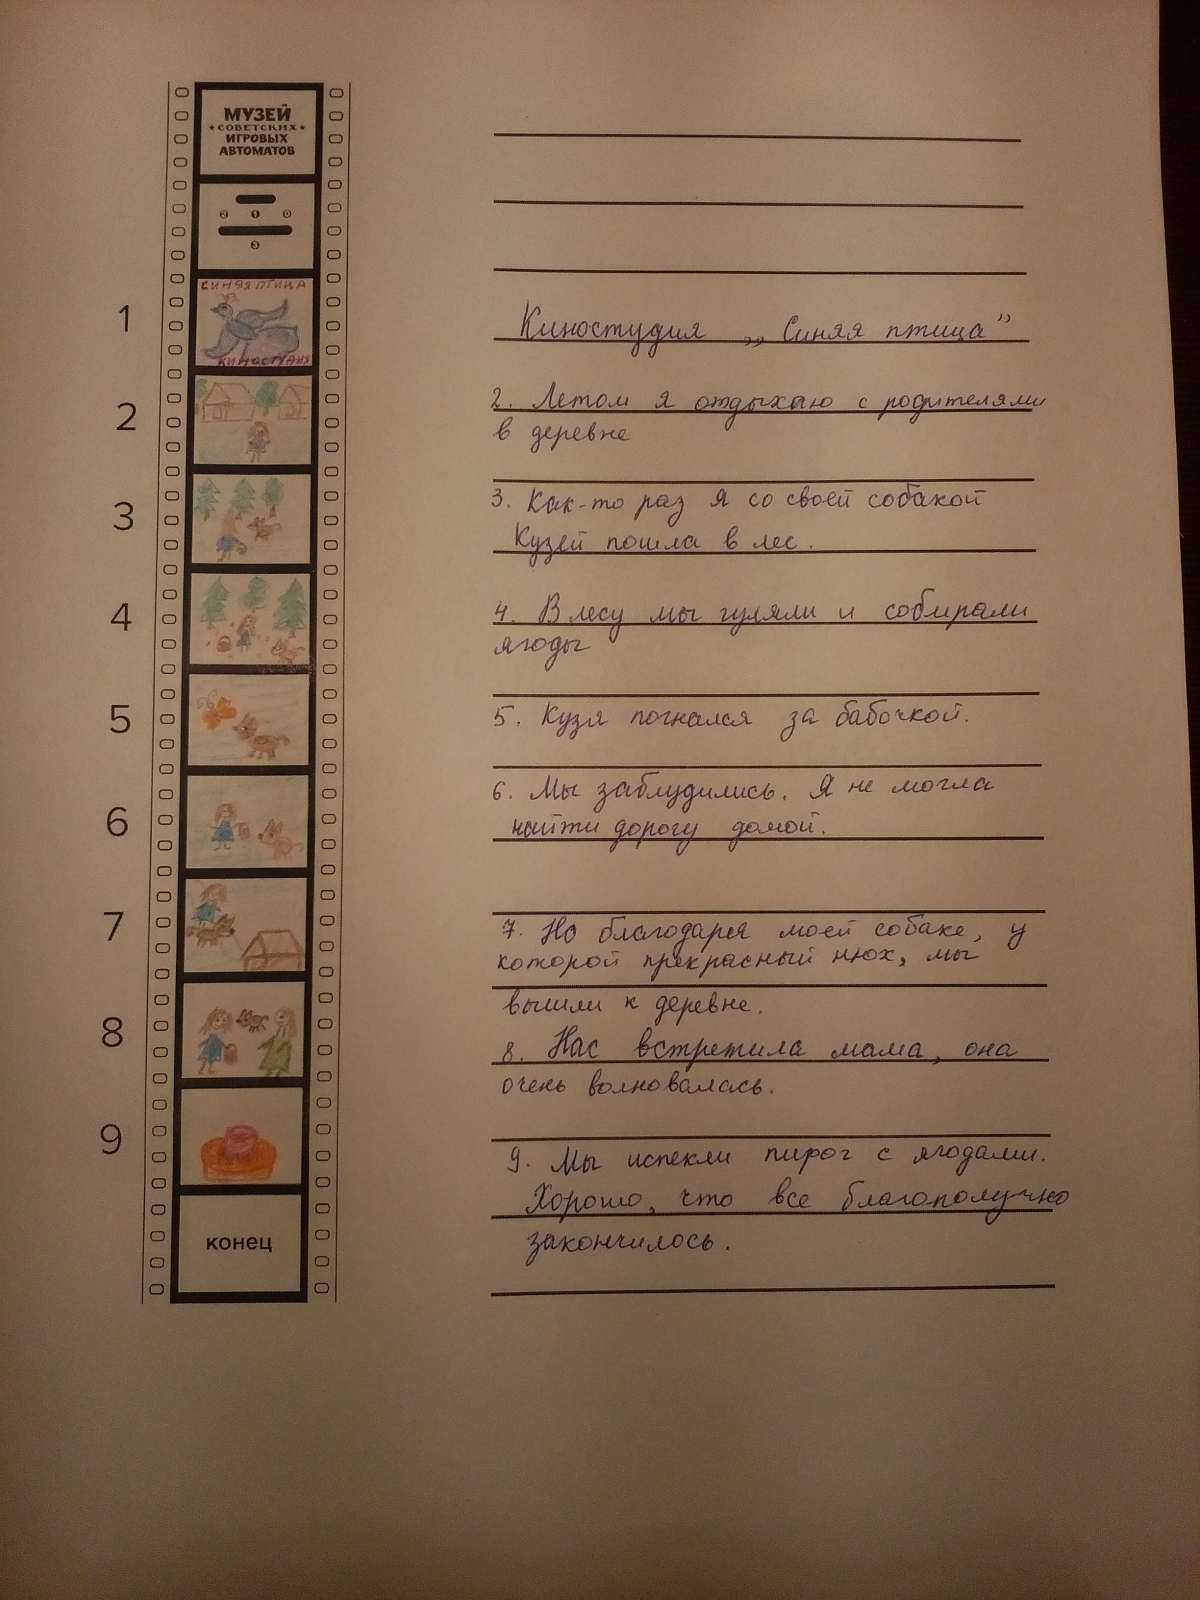 МУЗЕЙ
★СОВЕТСКИХ★
ИГРОВЫХ
АВТОМАТОВ
2 1 0
3
1
СИНЯЯ ПТИЦА
КИНОСТУДИЯ
Киностудия „Синяя птица”
2
2. Летом я отдыхаю с родителями
в деревне
3
3. Как-то раз я со своей собакой
Кузей пошла в лес.
4
4. В лесу мы гуляли и собирали
ягоды
5
5. Кузя погнался за бабочкой.
6
6. Мы заблудились. Я не могла
найти дорогу домой.
7
7. Но благодаря моей собаке, у
которой прекрасный нюх, мы
вышли к деревне.
8
8. Нас встретила мама, она
очень волновалась.
9
9. Мы испекли пирог с ягодами.
Хорошо, что все благополучно
закончилось.
конец